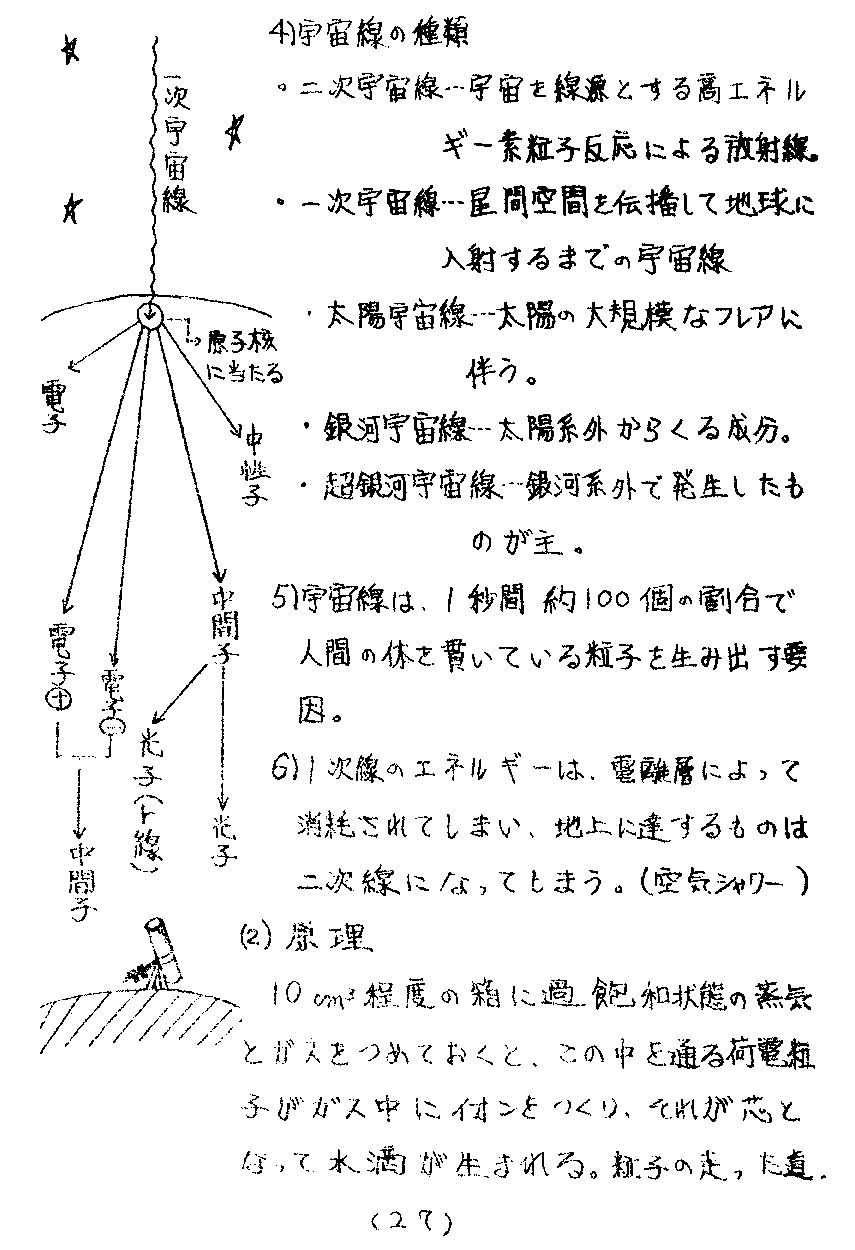 4)宇宙線の種類
。二次宇宙線…宇宙を線源とする高エネル
ギー素粒子反応による放射線。
・一次宇宙線…星間空間を伝播して地球に
入射するまでの宇宙線
・太陽宇宙線…太陽の大規模なフレアに
伴う。
・銀河宇宙線…太陽系外からくる成分。
・超銀河宇宙線…銀河系外で発生したも
のが主。
5)宇宙線は、1秒間 約100個の割合で
人間の体を貫いている粒子を生み出す要
因。
6)1次線のエネルギーは、電離層によって
消耗されてしまい、地上に達するものは
二次線になってしまう。(空気シャワー)
(2) 原理
10cm³程度の箱に過飽和状態の蒸気
とガスをつめておくと、この中を通る荷電粒
子がガス中にイオンをつくり、それが芯と
なって水滴が生まれる。粒子の走った直
(27)
一次宇宙線
原子核
に当たる
電子
中性子
電子⊕
電子⊖
中間子
中間子
光子(γ線)
光子